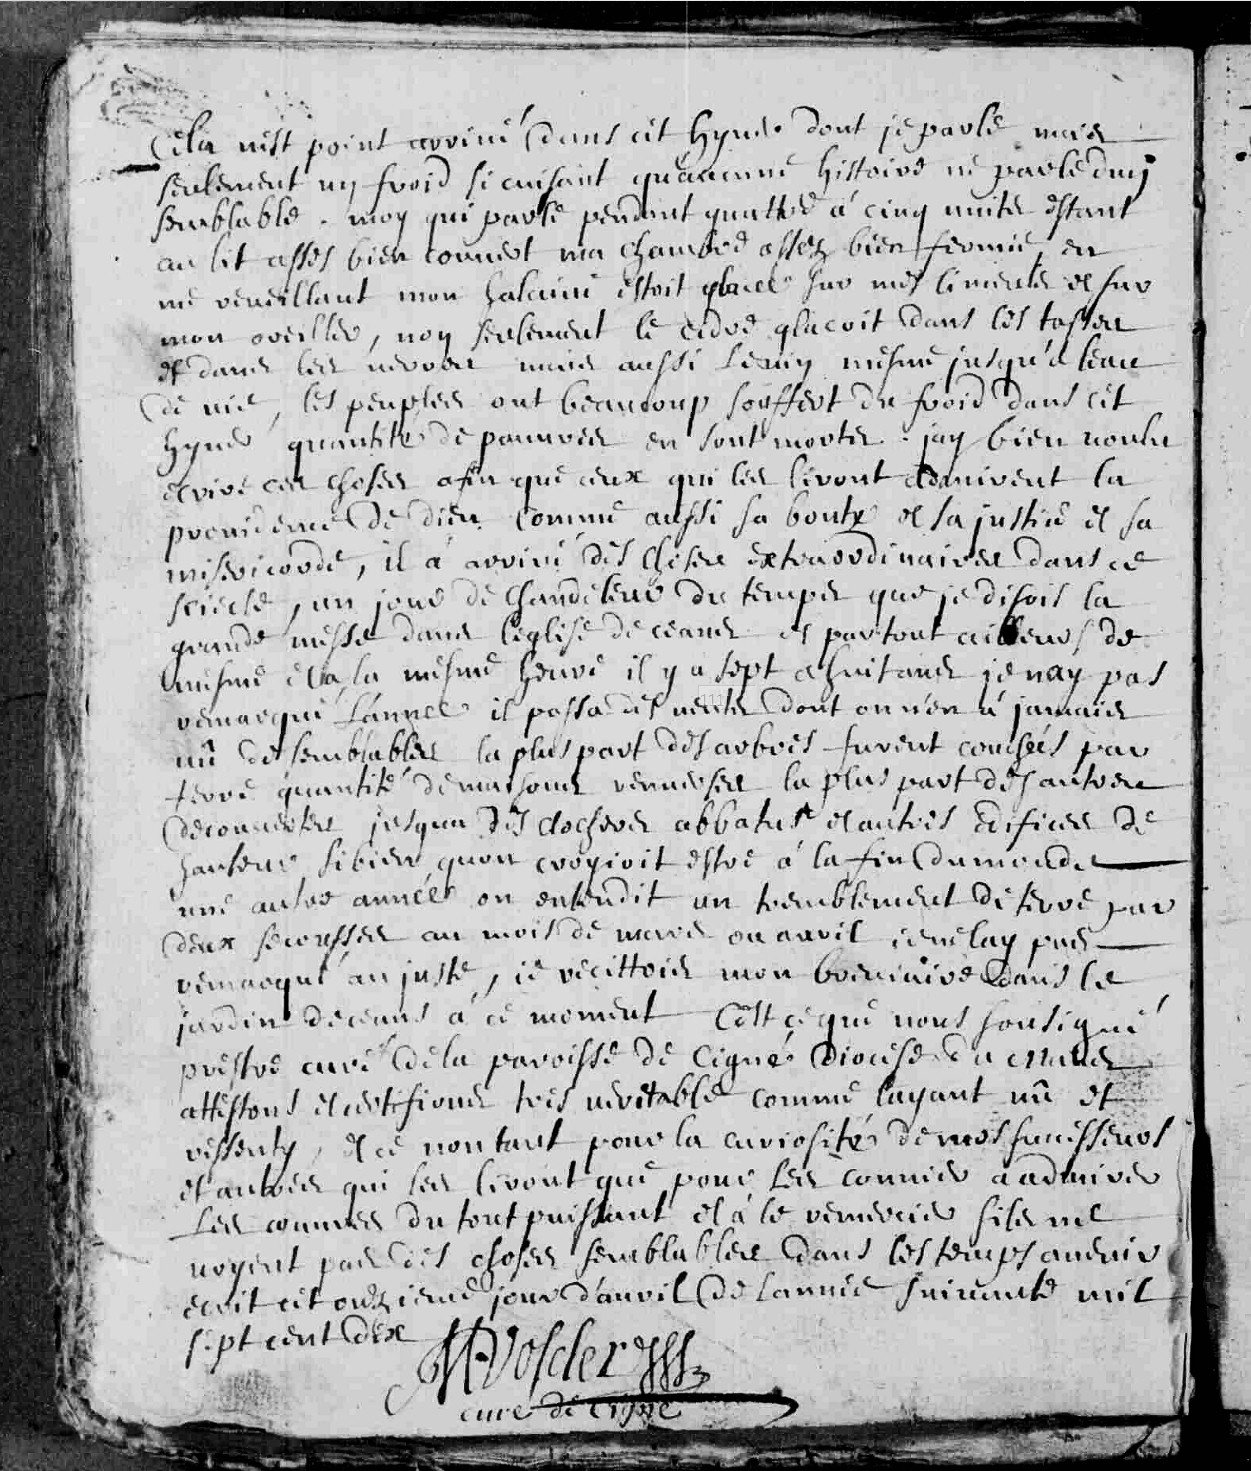 Cela nest point arrivé dans cet hyver dont je parle mais
seulement un froid si cuisant quaucune histoire ne parle dun
semblable. moy qui parle pendant quattre à cinq nuits estant
au lit assés bien couvert ma chambre assez bien fermée en
me reveillant mon halaine estoit glacée sur mes linceuls et sur
mon oreiller, non seulement le cidre glacoit dans les tasses
et dans les verres mais aussi le vin mesme jusqu'a leau
de vie, les peuples ont beaucoup souffert du froid dans cet
hyver quantité de pauvres en sont morts. jay bien voulu
ecrire ces choses afin que ceux qui les liront admirent la
providence de dieu comme aussi sa bonte et sa justice et sa
misericorde, il a arrivé des choses extraordinaires dans ce
sciecle, un jour de chandeleur du temps que je disois la
grande messe dans leglise de ceans et partout ailleurs de
mesme et a la mesme heure il y a sept a huit ans je nay pas
remarqué lannee il passa des vents dont on n'en a jamais
vû de semblables la plus part des arbres furent couchés par
terre quantité de maisons renversees la plus part des autres
decouvertes jusqua des clochers abbatus et autres edifices de
hauteur si bien quon croyioit estre à la fin du monde
une autre année on entendit un tremblement de terre par
deux secousses au mois de mars ou avril je ne lay pas
remarqué au juste, je recittois mon breviaire dans le
jardin de ceans à ce moment Cest ce que nous sousigné
prestre curé de la paroisse de Cigné diocese du Mans
attestons et certifions tres veritable comme layant vû et
ressenty, et ce non tant pour la curiosité de mes successeurs
et autres qui les liront que pour les convier a admirer
les œuvres du tout puissant et à le remercier sils ne
voyent pas des choses semblables dans les temps avenir
ecrit cet onzieme jour d'avril de lannée suivante mil
sept cent dix
curé de Cigné